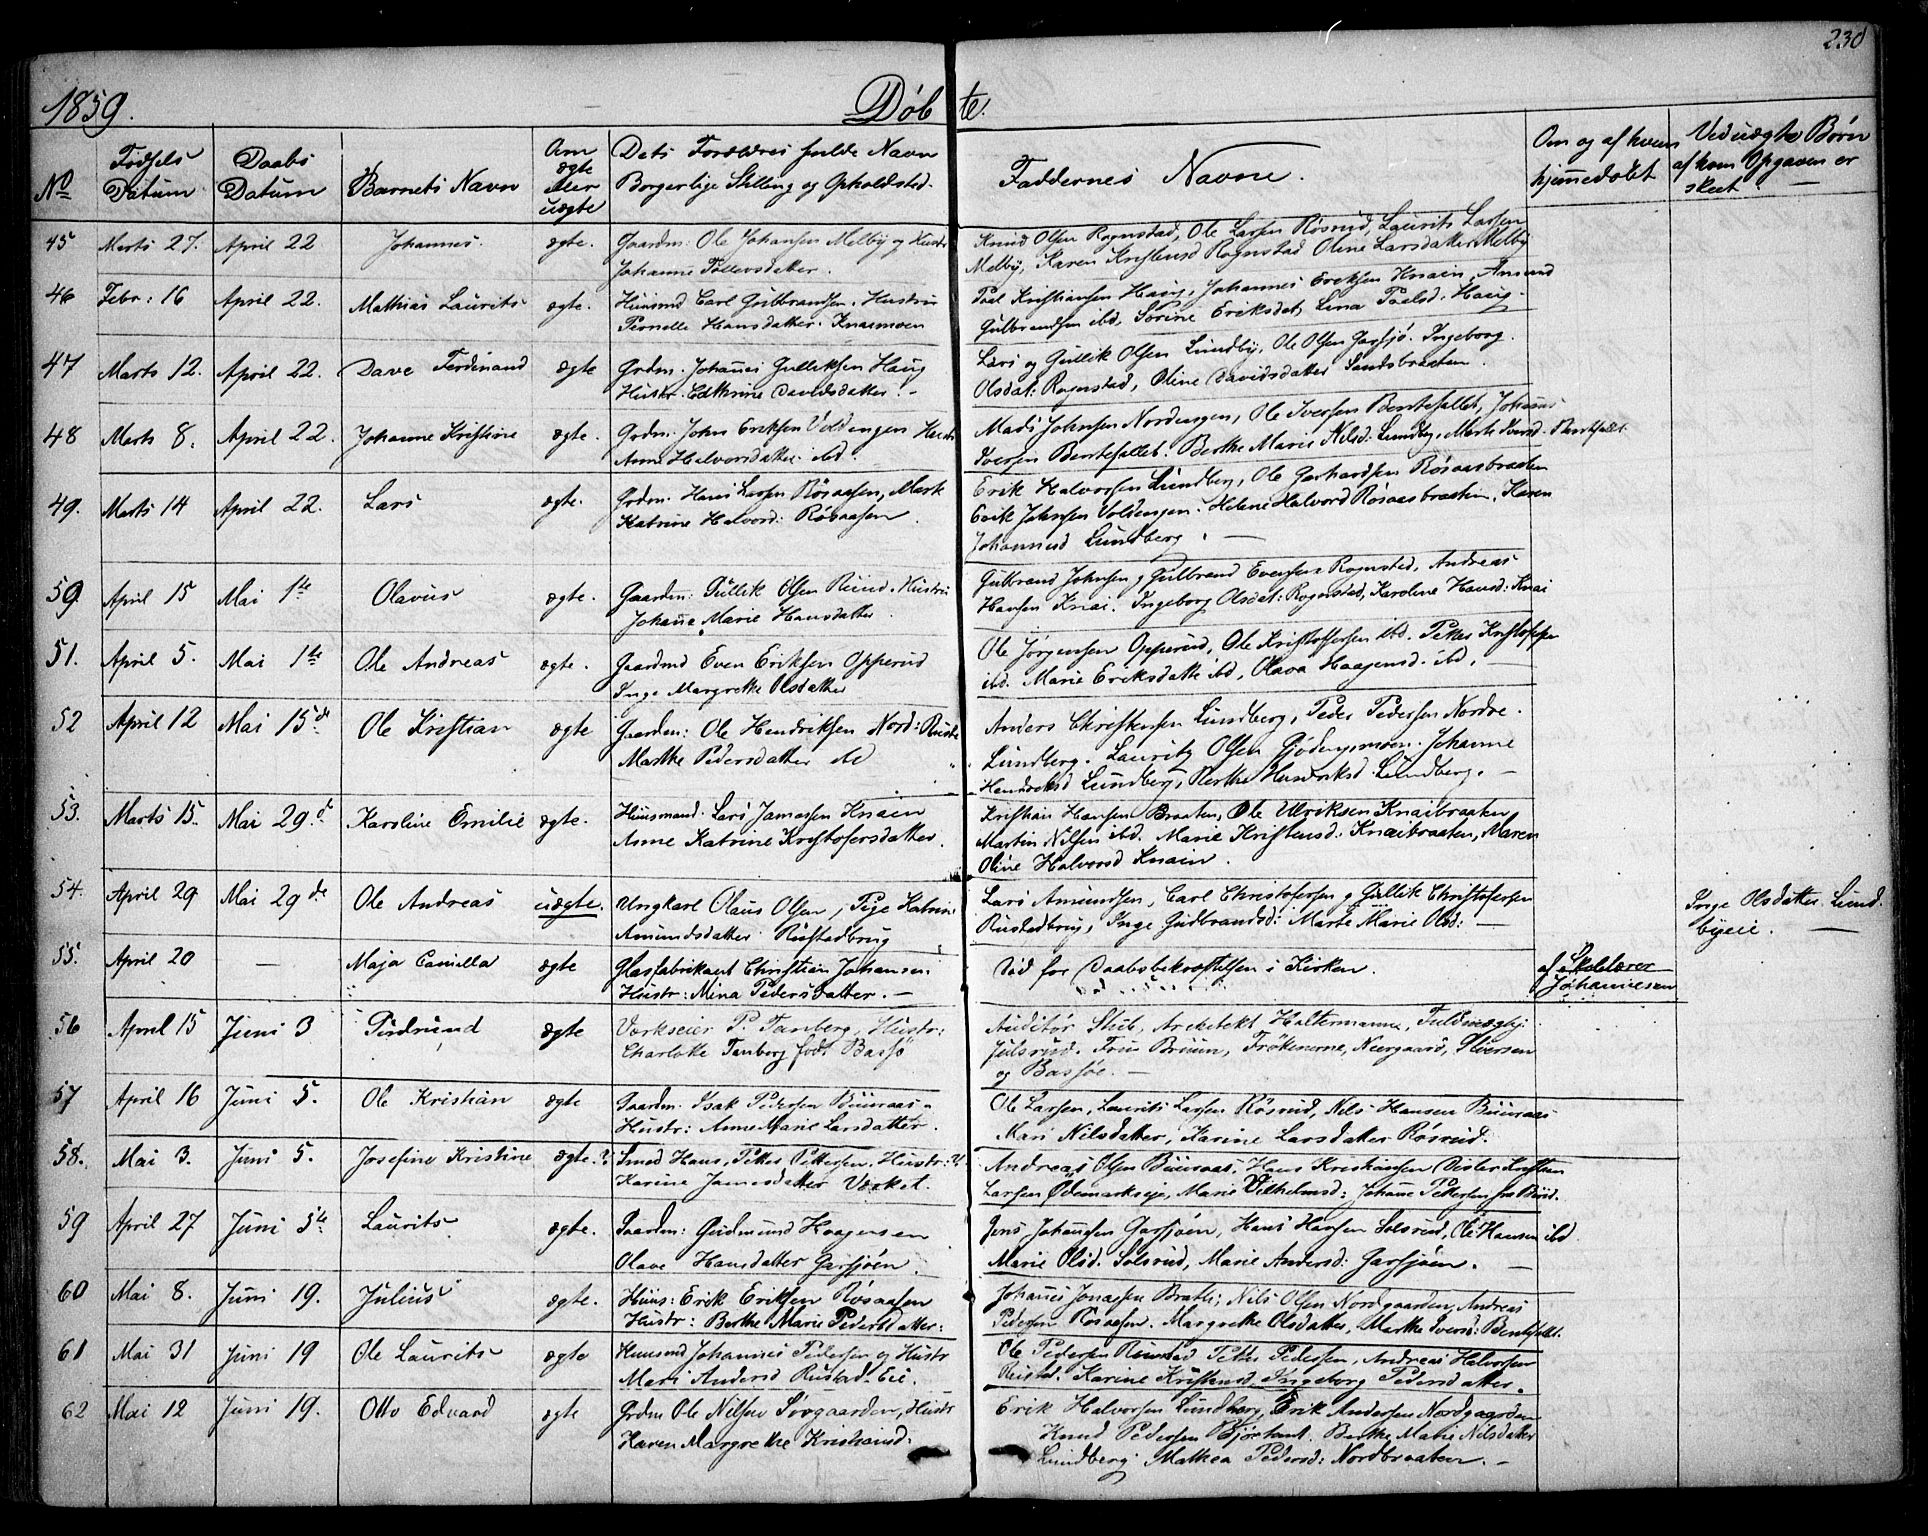 230
1859. Døbte.
No Fødsels Datum Daabs Datum Barnets Navn Om ægte eller uægte Dets Forældres fulde Navn Borgerlige Stilling og Opholdsted. Faddernes Navne. Om og af hvem hjemmedøbt Ved uægte Børn af hvem Opgaven er skeet —
45 Marts 27. April 22 Johannes. ægte. Gaardm: Ole Johansen Melby og Hustr
Johanne Tollevsdatter.
Knud Olsen Rognstad, Ole Larsen Røsrud, Laurits Larsen
Melby, Karen Kristensd Rognstad Oline Larsdatter Melby
46 Febr: 16 April 22. Mathias Laurits ægte. Huusmd Carl Gulbransen. Hustru
Pernelle Hansdatter. Knaemoen
Paal Kristiansen Haug, Johannes Eriksen Knain, Amund
Gulbrandsen ibd, Sørine Eriksdat, Lina Paalsd. Haug.
47 Marts 12. April 22. Dave Ferdinand ægte Grdm. Johanes Gulliksen Haug
Hustr. Cathrine Davidsdatter. —
Lars og Gullik Olsen Lundby, Ole Olsen Garsjø. Ingeborg.
Olsdat: Rognstad, Oline Davidsdatter Sandsbraaten.
48 Marts 8. April 22. Johanne Kristine ægte. Grdm. John Eriksen Voldengen Hustr
Anne Halvorsdatter ibd.
Mads Johnsen Nordengen, Ole Iversen Bentefallet, Johannes
Iversen Bentefallet. Berthe Marie Nilsd: Lundby. Marte Iversd. Bentefallet.
49. Marts 14 April 22. Lars ægte. Grdm. Hans Larsen Røsaasen,
Katrine Halvord: Røsaasen.
Erik Halvorsen Lundberg, Ole Gerhardsen Røsaasbraaten
Erik Johnsen Voldengen. Helene Halvord Røsaasbraaten. Karen
Johannesd Lundberg. —
50. April 15 Mai 1te Olavus ægte. Gaardm: Gullik Olsen Ruud. Hustru
Johanne Marie Hansdatter
Gulbrand Johnsen g Gulbrand Evensen Rognstad, Andreas
Hansen Knai. Ingeborg Olsdat: Rognstad, Karoline Hansd: Knai
51. April 5. Mai 1te Ole Andreas ægte. Gaardmd Even Eriksen Opperud
Inge Margrethe Olsdatter
Ole Jørgensen Opperud, Ole Kristoffersen ibd. Petter Kristoffersen
ibd. Marie Eriksdatte ibd, Olava Haagensd. ibd. —
52 April 12 Mai 15de Ole Kristian ægte Gaardm: Ole Hendriksen Nord:
Marthe Pedersdatter ibd
Anders Christensen Lundberg, Peder Pedersen Nordre.
Lundberg. Lauritz Olsen Johanne
Hendriksd Lundberg, Berthe Lundberg. —
53. Marts 15. Mai 29.de Karoline Emilie ægte. Huusmand. Lars Jamessen Knain
Anne Katrine Kristofersdatter.
Kristian Hansen Braaten, Ole Ulriksen Knaibraaten
Martin Nilsen ibd. Marie Kristensd: Knaibraaten, Maren
Oline Halvorsd Knain.
54. April 29 Mai 29de Ole Andreas uægte. Ungkarl Olaus Olsen, Pige Katrine
Amundsdatter Rustadbrug
Lars Amundsen, Carl Christofersen g Gullik Christofersen
Rustadbrug, Inge Gudbrandsd: Marte Marie Olsd: —
Inge Olsdatter Lund.
byeie. —
55. April 20 — Maja Camilla ægte Glasfabrikant Christian Johansen.
Hustr: Mina Pedersdatter. —
Død før Daabsbekræftelsen i Kirken.
af Skolelærer
Johannesen
56 April 15 Juni 3 ægte Værkseier P. Tanberg, Hustr:
Charlotte Tanberg født Bassø
Auditør Stub, Architekt Haltermanne, Fuldmægtig
Julsrud. Frue Bruun, Frøkenerne, Neergaard, Iversen
og Bassøe. —
57 April 16 Juni 5. Ole Kristian ægte Gaardm. Isak Pedersen Buuraas.
Hustr: Anne Marie Larsdatter.
Ole Larsen, Laurits Larsen Røsrud, Nils Hansen Buuraas
Mari Nilsdatter, Karine Larsdatter Røsrud.
58. Mai 3. Juni 5. Josefine Kristine ægte.? Smed Hans, Petter Pettersen, Hustr:?
Karine Jamesdatter Værket.
Andreas Olsen Buuraas, Hans Kristiansen Kristian
Larsen Ødemarkseje, Marie Vilhelmsd: Johanne Pettersen fra Buud.
59 April 27 Juni 5te Laurits ægte. Gaardm: Gudmund Haagensen
Olave Hansdatter Garsjøen.
Jens Johansen Garsjøen, Hans Hansen Solsrud, Ole Hansen ibd
Marie Olsd. Solsrud, Marie Andersd: Garsjøen. —
60 Mai 8. Juni 19. Julius ægte. Huus: Erik Eriksen Røsaasen
Hustr: Berthe Marie Pedersdatter:
Johannes Jonassen Brathi; Nils Olsen Nordgaarden, Andreas
Pedersen Røsaasen. Margrethe Olsdatter, Marthe Iversd: Bentefallet.
61 Mai 31 Juni 19 Ole Laurits ægte Huusmd Johannes Pedersen og Hustr
Mari Andersd Rustad-Eie.
Ole Pedersen Rustad Petter Pedersen, Andreas Halvorsen
Rustad. Karine Kristensd. Ingeborg Pedersdatter.
62 Mai 12 Juni 19. Otto Edvard ægte Grdm Ole Nilsen Sørgaarden, Hustr
Karen Margrethe Kristiansd.
Erik Halvorsen Lundberg, Erik Andersen Nordgaarden
Knud Pedersen Berthe Marie Nilsdatter
Lundberg. Mathea Pedersd: Nordbraaten. —